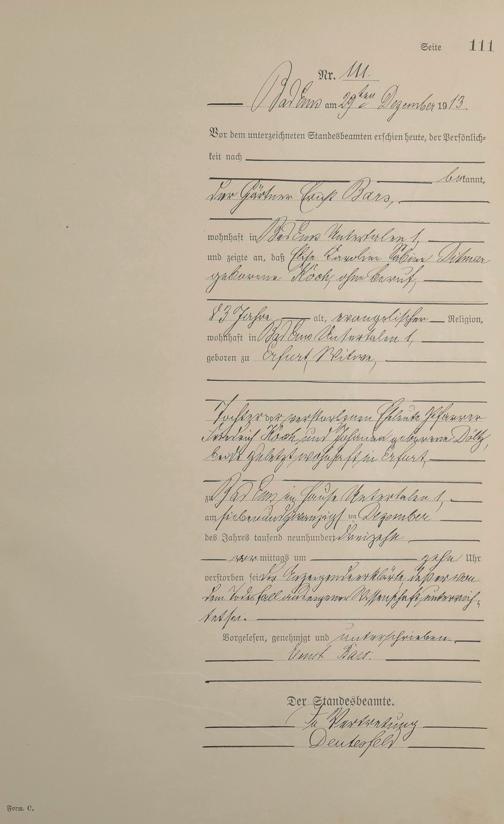 Seite 111
Nr. 111.
Bad Ems am 29ten Dezember 1913.
Vor dem unterzeichneten Standesbeamten erschien heute, der Persönlich-
keit nach
bekannt,
der Gärtner Ernst Bars,
wohnhaft in Bad Ems Untertalen 1,
und zeigte an, daß Elise Karolin Sabine Ditmar
geborene Koch, ohne Beruf,
83 Jahre alt, evangelischer Religion,
wohnhaft in Bad Ems Untertalen 1,
geboren zu Erfurt, Witwe,
Tochter der verstorbenen Eheleute Pfarrer
Koch und Johanna geborene
beide zuletzt wohnhaft in Erfurt,
zu Bad Ems in Hause Untertalen 1,
am siebenundzwanzigsten Dezember
des Jahres tausend neunhundert dreizehn
vormittags um zehn Uhr
verstorben sei. Der Anzeigende erklärte, daß er von
dem Todesfall aus eigener Wissenschaft unterrich-
tet sei.
Vorgelesen, genehmigt und unterschrieben
Ernst Bars.
Der Standesbeamte.
In Vertretung
Form. C.